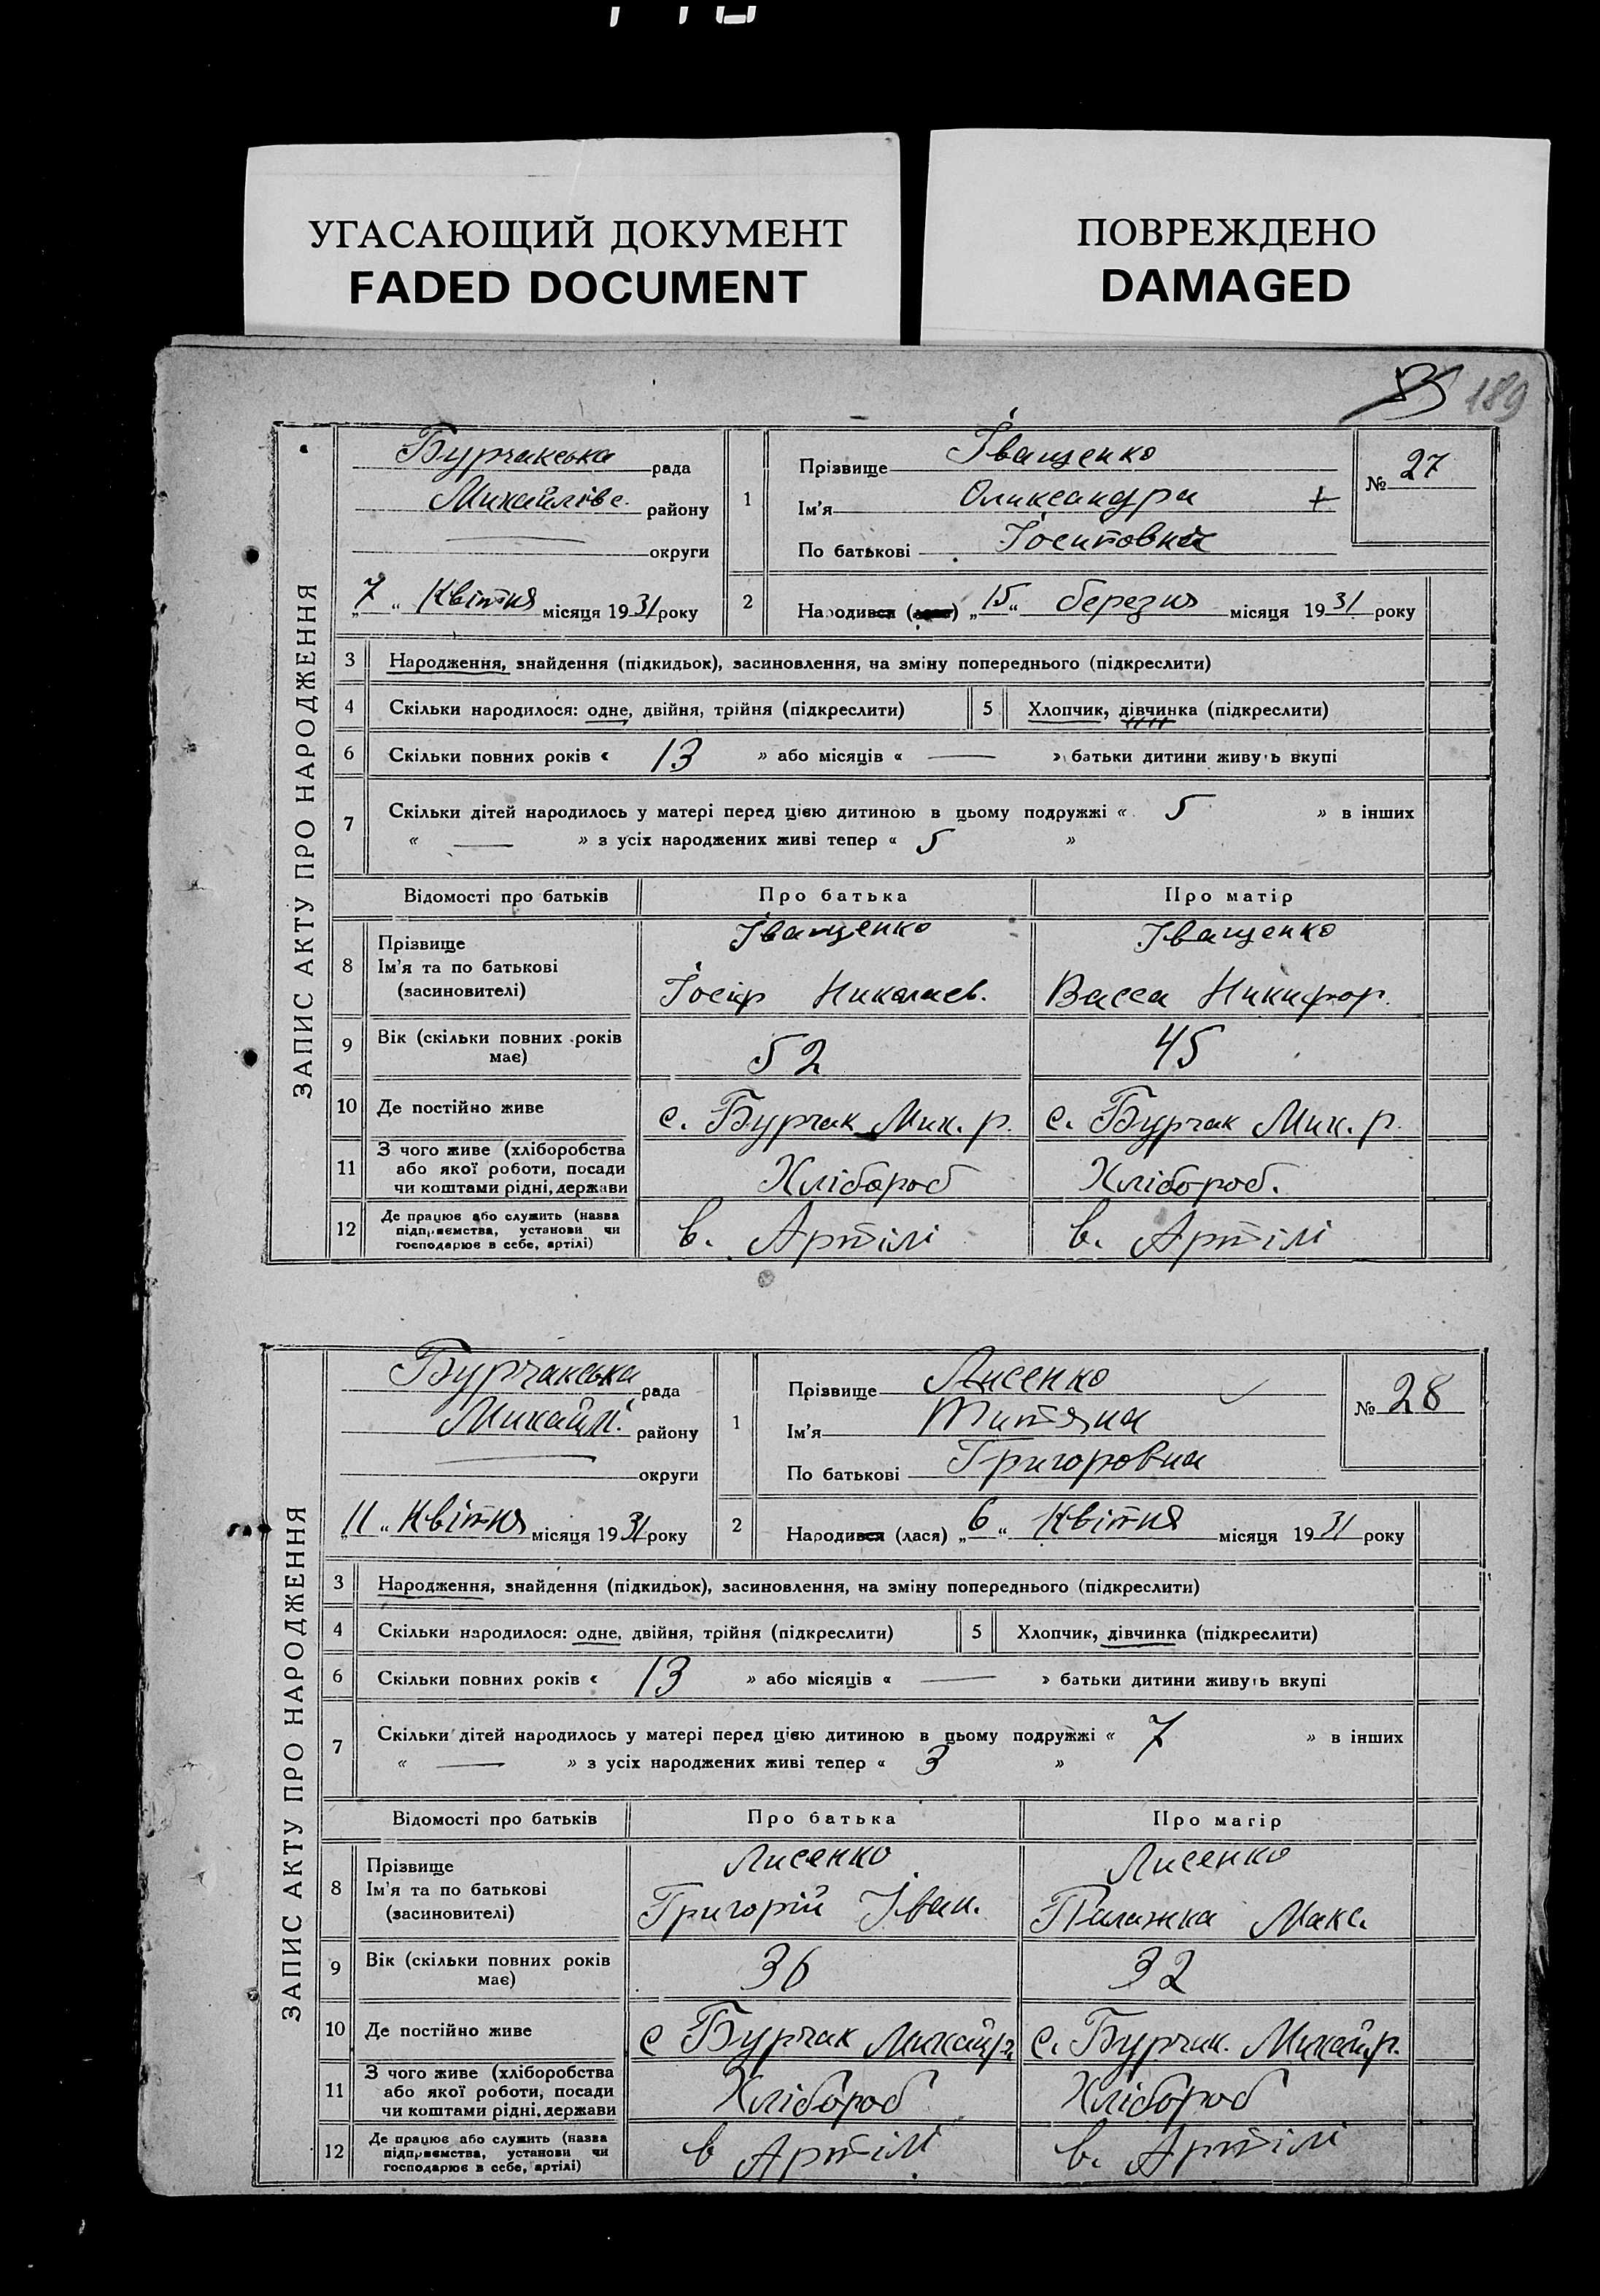 УГАСАЮЩИЙ ДОКУМЕНТ
FADED DOCUMENT
ПОВРЕЖДЕНО
DAMAGED
189
ЗАПИС АКТУ ПРО НАРОДЖЕННЯ
Бурчакська рада
Михайлівс. району
округи
„7“ Квітня місяця 1931 року
1 Прізвище Іващенко
Ім'я Олександра +
По батькові
№ 27
2 „15“ березня місяця 1931 року
3 Народження, знайдення (підкидьок), засиновлення, на зміну попереднього (підкреслити)
4 Скільки народилося: одне, двійня, трійня (підкреслити) 5 Хлопчик, дівчинка (підкреслити)
6 Скільки повних років « 13 » або місяців « — » батьки дитини живуть вкупі
7 Скільки дітей народилось у матері перед цією дитиною в цьому подружжі « 5 » в інших
« — » з усіх народжених живі тепер « 5 »
Відомості про батьків Про батька Про матір
8 Прізвище Іващенко Іващенко
Ім'я та по батькові
(засиновителі) Йосип Николаев. Васса Никифор.
9 Вік (скільки повних років
має) 52 45
10 Де постійно живе с. Бурчак Мих. р. с. Бурчак Мих. р.
11 З чого живе (хліборобства
або якої роботи, посади
чи коштами рідні, держави Хлібороб Хлібороб.
12 Де працює або служить (назва
підприємства, установи чи
господарює в себе, артілі) в. Артілі в. Артілі
ЗАПИС АКТУ ПРО НАРОДЖЕННЯ
Бурчакська рада
Михайл. району
округи
„11“ Квітня місяця 1931 року
1 Прізвище Лисенко
Ім'я Титяна
По батькові Григоровна
№ 28
2 Народився (лася) „6“ Квітня місяця 1931 року
3 Народження, знайдення (підкидьок), засиновлення, на зміну попереднього (підкреслити)
4 Скільки народилося: одне, двійня, трійня (підкреслити) 5 Хлопчик, дівчинка (підкреслити)
6 Скільки повних років « 13 » або місяців « — » батьки дитини живуть вкупі
7 Скільки дітей народилось у матері перед цією дитиною в цьому подружжі « 7 » в інших
« — » з усіх народжених живі тепер « 3 »
Відомості про батьків Про батька Про матір
8 Прізвище Лисенко Лисенко
Ім'я та по батькові
(засиновителі) Григорій Іван. Макс.
9 Вік (скільки повних років
має) 36 32
10 Де постійно живе с Бурчак с. Бурчак.
11 З чого живе (хліборобства
або якої роботи, посади
чи коштами рідні, держави Хлібороб Хлібороб
12 Де працює або служить (назва
підприємства, установи чи
господарює в себе, артілі) в Артілі в. Артілі